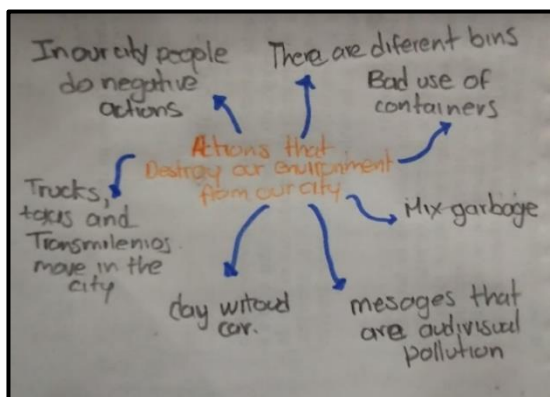 In our city people
do negative
actions
There are diferent bins
Bad use of
containers
Actions that
Destroy our envirnment
from our city
Trucks,
taxis and
Transmilenios
move in the
city
Mix garbage
day witoud
car.
mesages that
are audivisual
pollution